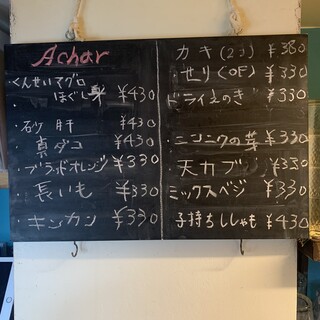 Achar
・くんせいマグロ
ほぐし身 ¥430
・砂肝 ¥430
・真ダコ ¥430
・ブラッドオレンジ ¥330
・長いも ¥330
・キンカン ¥330
カキ(2コ) ¥380
・せり(OF) ¥330
・ドライえのき ¥330
・ニンニクの芽 ¥330
・天カブ ¥330
ミックスベジ ¥330
子持ちししゃも ¥430